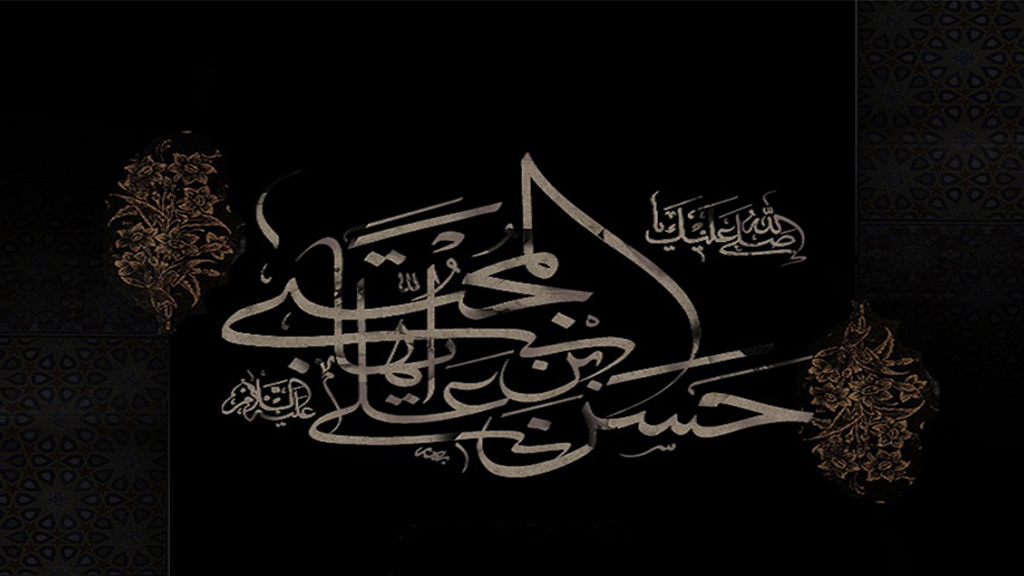 صلی الله علیک یا
حسن بن علی
ایها المجتبی
علیه السلام